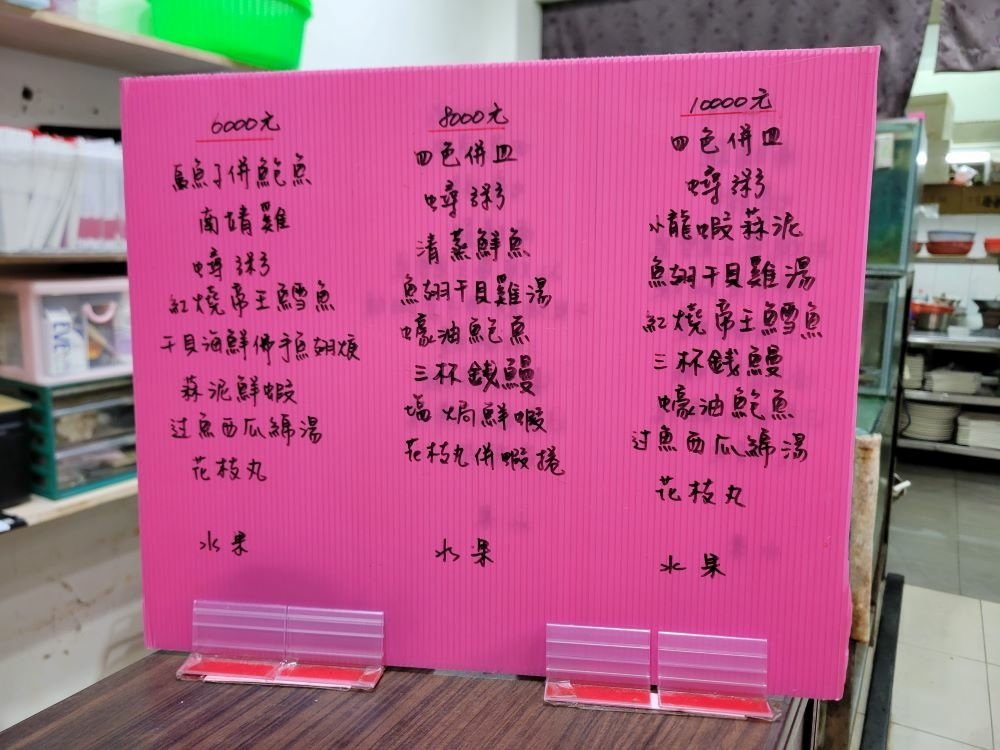 6000元
烏魚子併鮑魚
南靖雞
蟳粥
紅燒帝王鱈魚
干貝海鮮佛手魚翅煩
蒜泥鮮蝦
过魚西瓜綿湯
花枝丸
水果
8000元
四色併皿
蟳粥
清蒸鮮魚
魚翅干貝雞湯
蠔油鮑魚
三杯錢鰻
塩焗鮮蝦
花枝丸併蝦捲
水果
10000元
四色併皿
蟳粥
小龍蝦蒜泥
魚翅干貝雞湯
紅燒帝王鱈魚
三杯錢鰻
蠔油鮑魚
过魚西瓜綿湯
花枝丸
水果